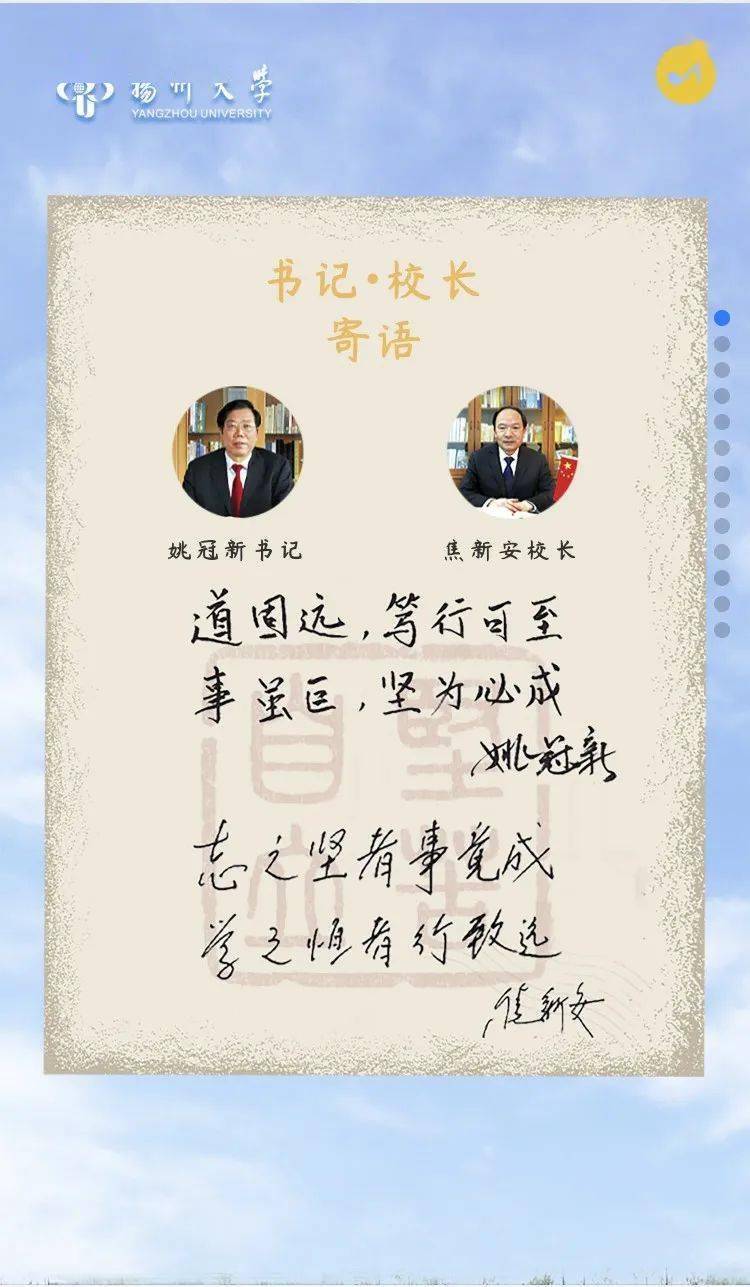 扬州大学
YANGZHOU UNIVERSITY
书记·校长
寄语
姚冠新书记
焦新安校长
道固远,笃行可至
事虽巨,坚为必成
姚冠新
志之坚者事竟成
学之恒者行致远
焦新安
坚苦
自立